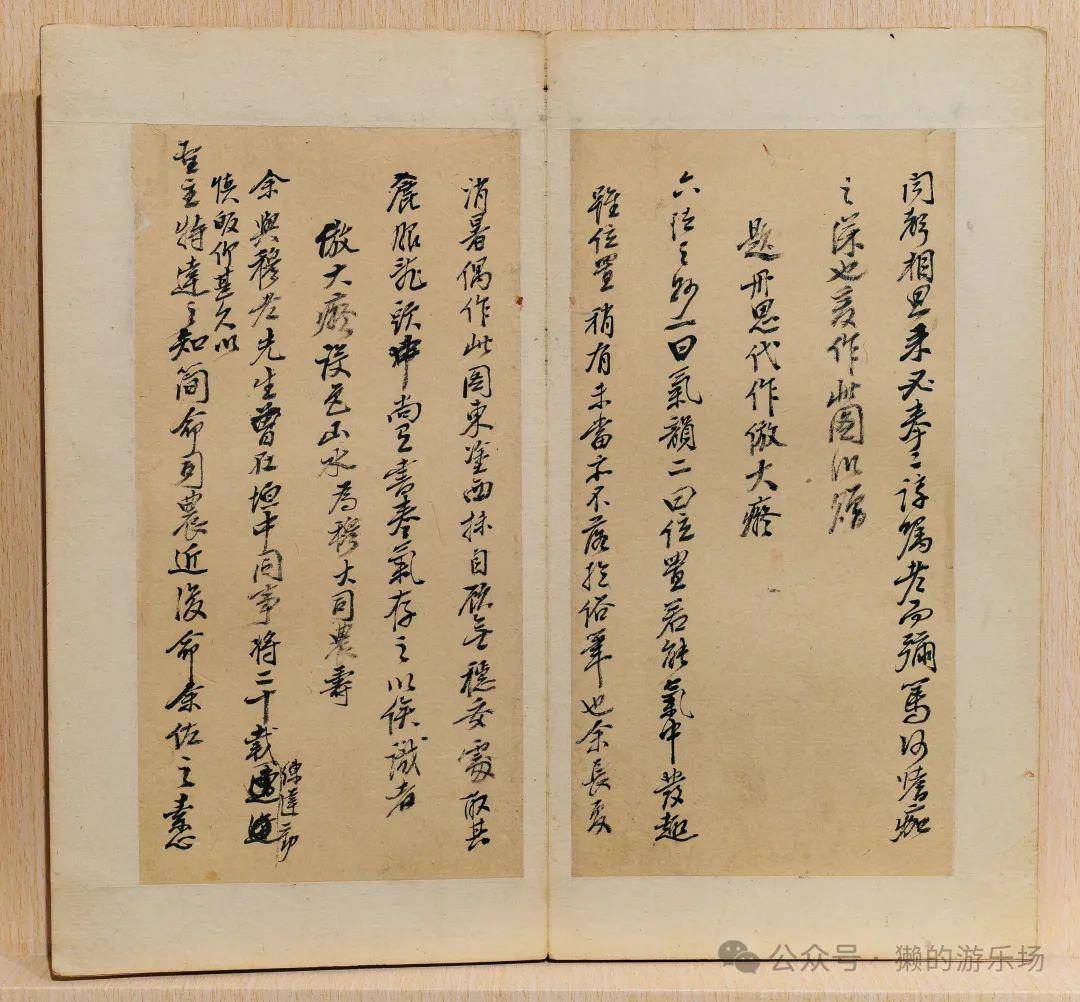 聞聲相思來必諄囑老而彌篤何嗜痂
之深也爰作此圖以贈
題丹思代作倣大癡
六法之妙一曰氣韻二曰位置若能氣中發趣
雖位置稍有未當亦不落於俗筆也余長夏
消暑偶作此圖東塗西抹自顧無穩妥處取其
麄服亂頭中尚有書卷氣存之以俟識者
倣大癡設色山水為穆大司農壽
余與穆老先生曾在垣中同事將二十載
練達
慎仰其久以
聖主特達之知簡命司農近復命余佐之素
公众号·獭的游乐场